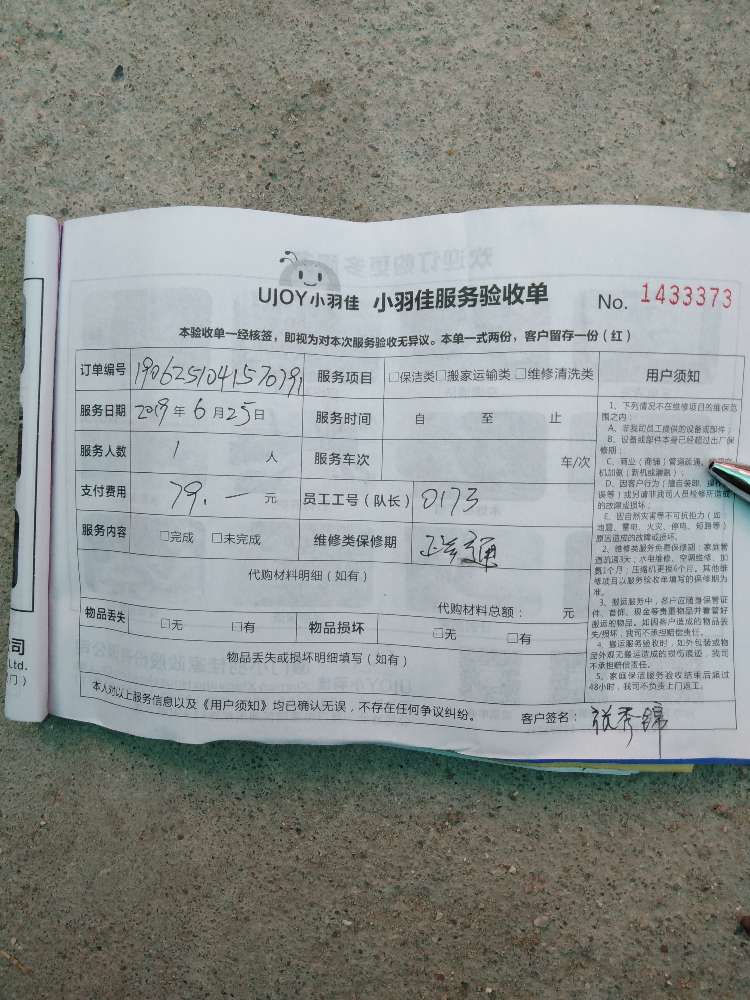 UJOY小羽佳 小羽佳服务验收单 No. 1433373
本验收单一经核签，即视为对本次服务验收无异议。本单一式两份，客户留存一份（红）
订单编号 190625104157079 服务项目 □保洁类□搬家运输类 □维修清洗类
服务日期 2019年6月25日 服务时间 自 至 止
服务人数 1 人 服务车次 车/次
支付费用 79.一 元 员工工号（队长） 0173
服务内容 □完成 □未完成 维修类保修期 通
代购材料明细（如有）
代购材料总额： 元
物品丢失 □无 □有 物品损坏 □无 □有
物品丢失或损坏明细填写（如有）
本人对以上服务信息以及《用户须知》均已确认无误，不存在任何争议纠纷。 客户签名： 张秀锦
用户须知
1、下列情况不在维修项目的维保范
围之内：
A、非我司员工提供的设备或部件；
B、设备或部件本身已经超过出厂保
修期；
C、商业（商铺）管道疏通、
机加氨（新机或漏氨）；
D、因客户行为（擅自装卸、操作
误等）或另请非我司人员检修所造成
的故障或损坏；
E、因自然灾害等不可抗拒力（如：
地震、雷电、火灾、停电、短路等）
原因造成的故障或损坏。
2、维修类服务免费保修期：家庭管
道疏通3天；水电维修、空调维修、加
氨1个月；压缩机更换6个月。其他维
修项目以服务验收单填写的保修期为
准。
3、搬运服务中，客户应随身保管证
件、首饰、现金等贵重物品并看管好
搬运的物品。如因客户造成的物品丢
失/损坏，我司不承担赔偿责任。
4、搬运服务验收时，如外包装或物
品外观无搬运造成的损伤痕迹，我司
不承担赔偿责任。
5、家庭保洁服务验收结束后超过
48小时，我司不负责上门返工。
司
Ltd.
门）